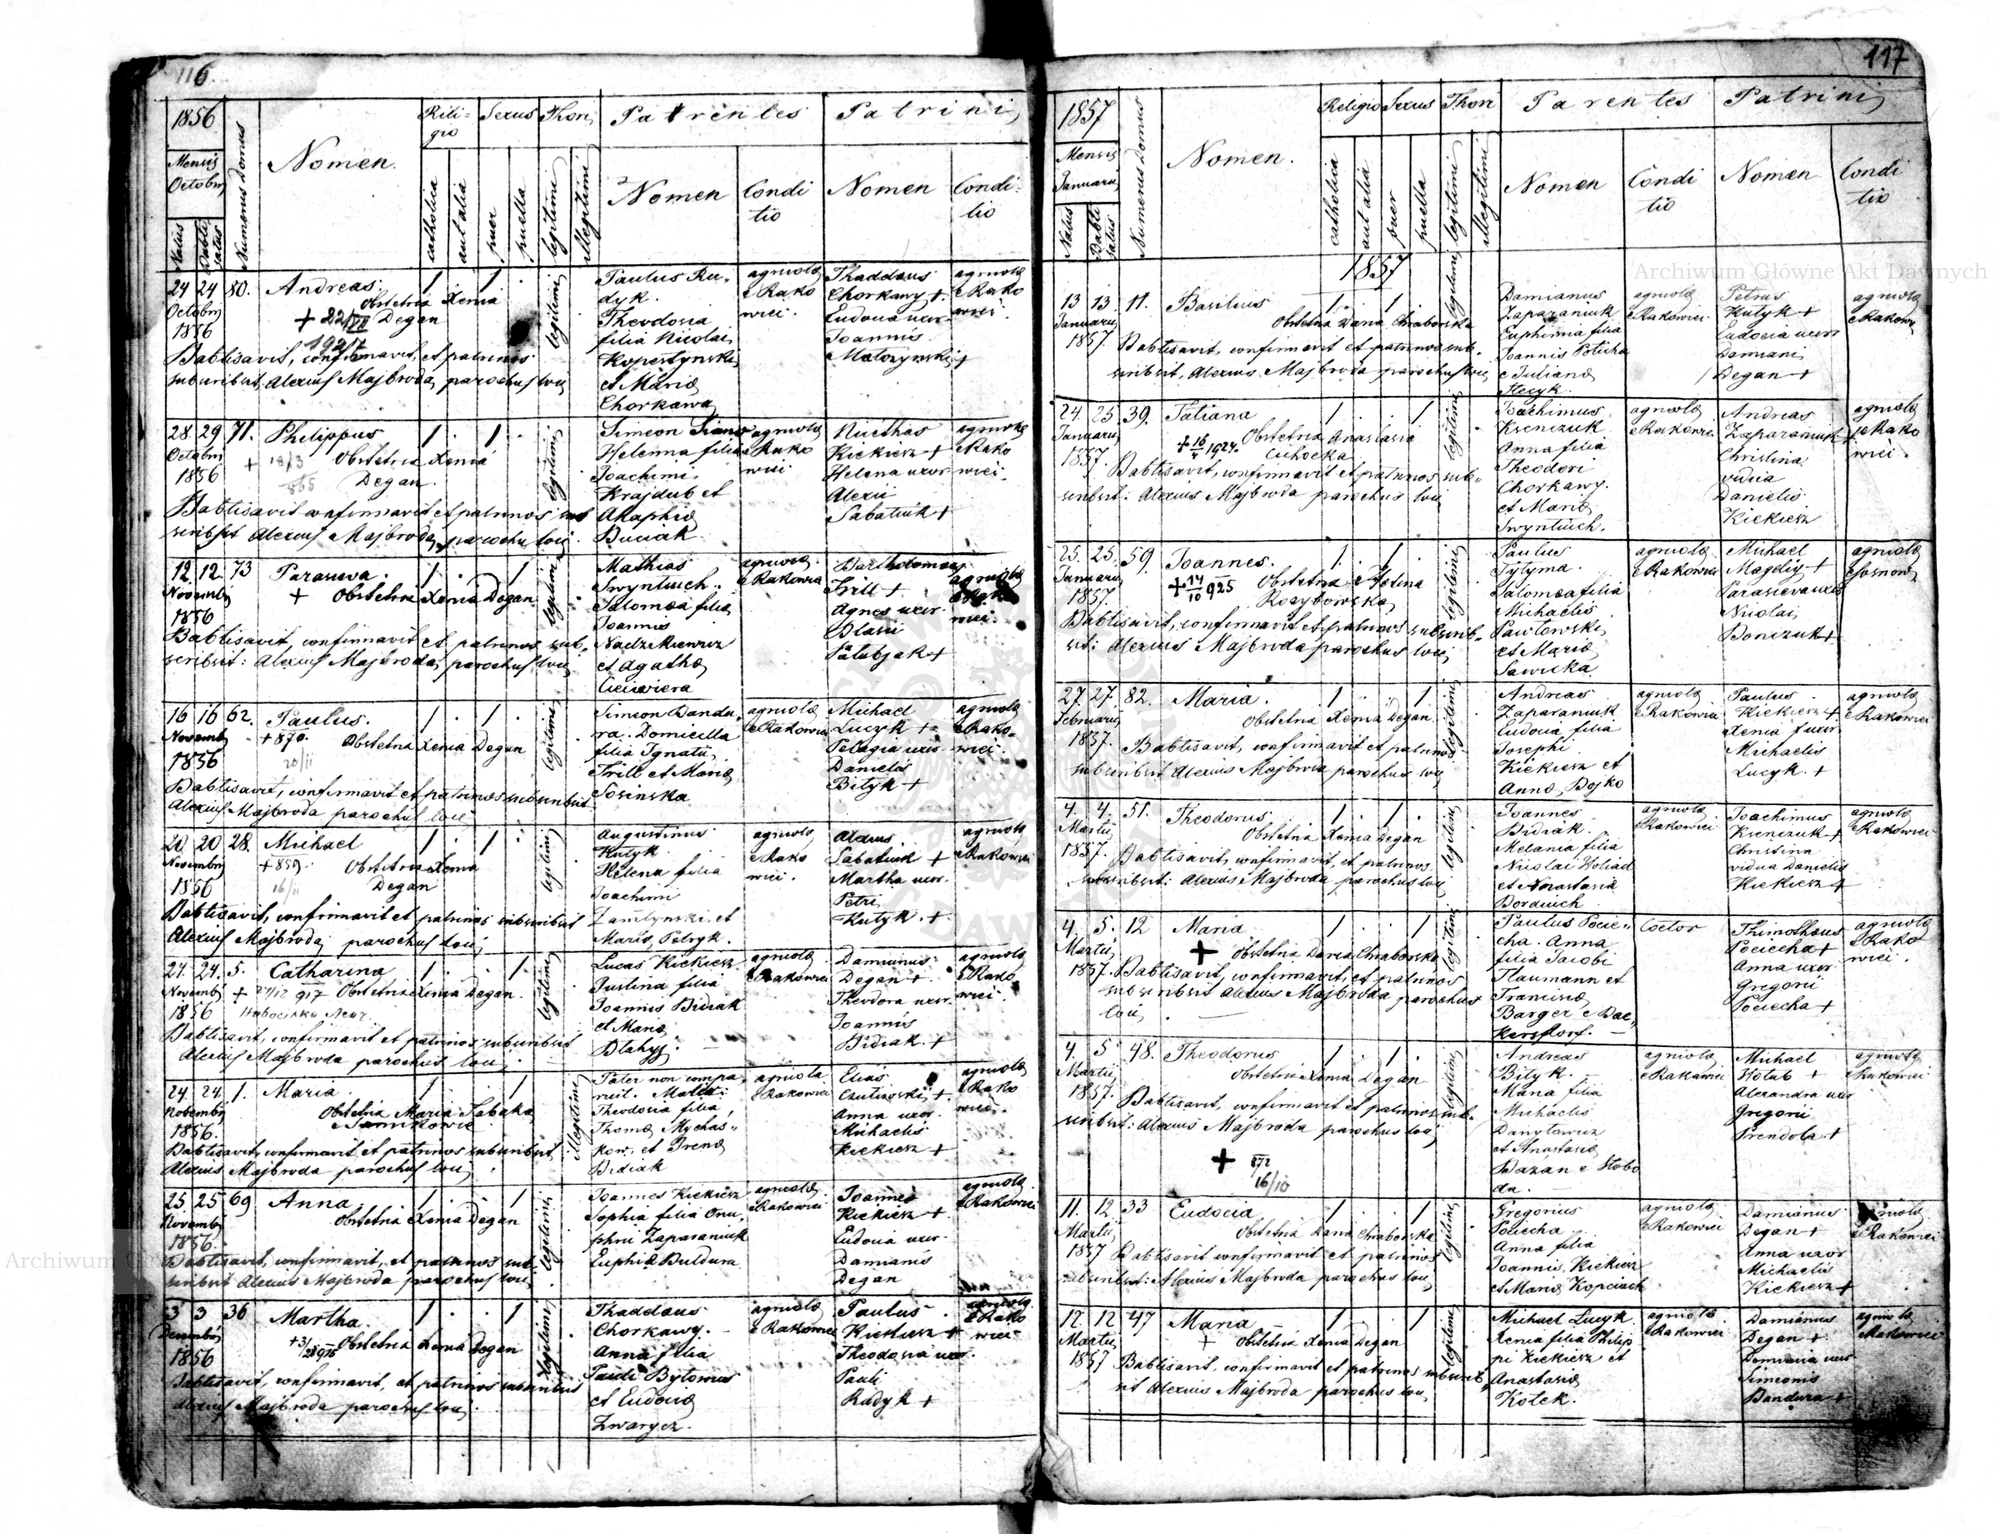 116.
1856
Mensis
Octobris
Natus
Babtisatus
Numerus domus
Nomen.
Religio
catholica
aut alia
Sexus
puer
puella
Thori
legitimi
illegitimi
Parentes
Nomen
Conditio
Patrini
Nomen
Conditio
24 24 50. Andreas.
Octobris
1856
Obstetrix Xenia
Degan
+ 22/VII
1927
Babtisavit, confirmavit, et patrinos
subscribsit, Alexius Majbroda, parochus loci
legitimi
Paulus Ru-
dyk.
Theodosia
filia Nicolai
Kopertynski
et Maria
Chorkawa
agricola
e Rako
wiei.
Thaddaus
Chorkawy +
Eudocia uxor
Joannis
agricola
e Rako
wiei.
28 29 71. Philippus
Octobris
1856
Obstetrix Xenia
Degan.
Babtisavit confirmavit et patrinos sub
scribsit Alexius Majbroda, parochus loci
legitimi
Simeon
Helenna filia
Joachimi
Krajdub et
Buciak
agricola
e Rako
wiei
Kickierz +
Helena uxor
Alexii
Sabatiuk +
agricola
e Rako
wiei.
12. 12. 73 Parasceva.
Novembris
1856
+ Obstetrix Xenia Degan
Babtisavit, confirmavit et patrinos sub,
scribsit: Alexius Majbroda, parochus loci
legitimi
Mathias
Swyntuch.
Salomea filia
Joannis
et Agatha
agricola
e Rakowiei
Bartholomaeus
Trill +
Agnes uxor
Blasii
agricola
wiei.
16 16 62. Paulus.
Novembris
1856
+ 870
20/11
Obstetrix Xenia Degan
Babtisavit, confirmavit et patrinos subscribsit
Alexius Majbroda parochus loci
legitimi
Simeon Bandu,
ra. Domicella
filia Ignatii
Trill et Maria
Sosinska
agricola
e Rakowiei
Michael
Lucyk +
Pelagia uxor
Danielis
Bityk +
agricola
e Rako-
wiei.
20 20 28. Michael
Novembris
1856
+ 859.
16/11
Obstetrix Xenia
Degan
Babtisavit, confirmavit et patrinos subscribsit
Alexius Majbroda, parochus loci,
legitimi
Augustinus
Kutyk.
Helena filia
Joachimi
Zamlynski, et
Maria, Petryk.
agricola
e Rako
wiei.
Alexius
Sabatiuk +
Martha uxor
Petri
Kutyk. +
agricola
e Rakowiei
24. 24. 5. Catharina
Novembris
1856
Obstetrix Xenia Degan.
Babtisavit, confirmavit et patrinos subscribsit
Alexius Majbroda parochus loci;
legitimi
Lucas Kickierz
Justina filia
Joannis Bidiak
et Maria
Blahyj.
agricola
e Rakowiei
Damianus
Degan +
Theodora uxor
Joannis
Bidiak +
agricola
e Rako
wiei.
24. 24. 1. Maria
Novembris
1856.
Obstetrix Maria Sabaka
Babtisavit, confirmavit et patrinos subscribsit,
Alexius Majbroda parochus loci,
illegitimi
Pater non compa,
ruit. Mater
Theodosia filia,
Thoma Mychas,,
kow, et Irena
Bidiak
agricola
e Rakowiei
Elias
Anna uxor
Michaelis
Kickierz +
agricola
e Rako
wiei.
25. 25 69 Anna
Novembris
1856.
Obstetrix Xenia Degan
Babtisavit, confirmavit, et patrinos sub,
scribsit Alexius Majbroda parochus loci,
legitimi
Joannes Kickierz
Sophia filia Onu,
phrii Zaparaniuk
Euphia Buldura
agricola
e Rakowiei
Joannes
Kickierz +
Eudocia uxor
Damianis
Degan
agricola
e Rakowiei
3 3 36 Martha.
Decembris
1856
Obstetrix Xenia Degan
Babtisavit, confirmavit, et patrinos subscribsit
Alexius Majbroda parochus loci,
legitimi
Thaddaus
Chorkawy.
Anna filia
Pauli Bytowus
et Eudocia
Zwarycz.
agricola
e Rakowiei
Paulus
Kickierz +
Theodosia uxor
Pauli
Rudyk +
agricola
e Rako
wiei
117
1857
Mensis
Januarii
Natus
Babtisatus
Numerus domus
Nomen.
Religio
catholica
aut alia
Sexus
puer
puella
Thori
legitimi
illegitimi
Parentes
Nomen
Conditio
Patrini
Nomen
Conditio
1857
13 13 11. Basilius
Januarii
1857.
Obstetrix Daria Chraborska
Babtisavit, confirmavit et patrinos sub,
scribsit, Alexius Majbroda parochus loci,
legitimi
Damianus
Zaparaniuk
Euphimia filia
Joannis Poticha
e Juliana
Hecyk.
agricola
e Rakowiei
Petrus
Kutyk +
Eudocia uxor
Damiani
Degan +
agricola
e Rakowiei
24. 25 39. Tatiana
Januarii
1857
+ 16/4 1924.
Obstetrix Anastasia
Cichocka
Babtisavit, confirmavit et patrinos sub,,
scribsit: Alexius Majbroda parochus loci,
legitimi
Joachimus
Ksenczuk
Anna filia
Theodori
Chorkawy.
et Maria
Swyntuch.
agricola
e Rakowiei
Andreas
Zaparaniuk +
Christina
vidua
Danielis
Kickierz
agricola
e Rako
wiei.
25. 25. 59. Joannes.
Januarii
1857.
+ 14/10 925
Babtisavit, confirmavit et patrinos subscrib-
sit: Alexius Majbroda parochus loci,
legitimi
Paulus
Tytyma.
Salomea filia
Michaelis
Pawlowski,
et Maria
Sawicka
agricola
e Rakowiei
Michael
Magdiy +
Parasceva uxor
Nicolai
Bonczuk +
agricola
27 27. 82. Maria.
Februarii
1857.
Obstetrix Xenia Degan.
Babtisavit, confirmavit et patrinos
subscribsit Alexius Majbroda parochus loci,
legitimi
Andreas
Zaparaniuk
Eudocia filia
Josephi
Kickierz et
Anna Bojko
agricola
e Rakowiei
Paulus
Kickierz +
Xenia uxor
Michaelis
Lucyk. +
agricola
e Rakowiei
4. 4. 51. Theodorus.
Martii
1857.
Obstetrix Xenia Degan
Babtisavit, confirmavit, et patrinos
subscribsit: Alexius Majbroda parochus loci,
legitimi
Joannes
Bidiak.
Melania filia
Nicolai Holiad
et Anastasia
Borduich
agricola
e Rakowiei
Joachimus
Ksenczuk +
Christina
vidua Danielis
Kickierz +
agricola
e Rakowiei
4. 5. 12 Maria
Martii
1857
+ Obstetrix Daria Chraborska
Babtisavit, confirmavit, et patrinos
subscribsit Alexius Majbroda parochus
loci,
legitimi
Paulus Pocie-
cha. Anna
filia Jacobi
Naumann et
Francisca
Barger e Bac,
kersdorf.
Coctor
Thimotheus
Pociecha +
Anna uxor
Gregorii
Pociecha +
agricola
e Rako
wiei.
4. 5 48. Theodorus
Martii
1857.
Obstetrix Xenia Degan
Babtisavit, confirmavit, et patrinos sub,
scribsit: Alexius Majbroda parochus loci,
+ 872
16/10
legitimi
Andreas
Bityk.
Maria filia
Michaelis
Danylewicz
et Anastasia
Bazan e Slobo
da.
agricola
e Rakowiei
Michael
Holub +
Alexandra uxor
Gregorii
Prendota +
agricola
e Rakowiei
11. 12 33 Eudocia
Martii
1857
Obstetrix Daria Chraborska
Babtisavit confirmavit et patrinos
subscribsit: Alexius Majbroda parochus loci,
legitimi
Gregorius
Pociecha.
Anna filia
Joannis Kickierz
et Maria Kopciuch
agricola
e Rakowiei
Damianus
Degan +
Anna uxor
Michaelis
Kickierz +
agricola
e Rakowiei
12. 12 47 Maria
Martii
1857
+ Obstetrix Xenia Degan
Babtisavit, confirmavit et patrinos subscrib,
sit Alexius Majbroda parochus loci,
legitimi
Michael Lucyk.
Xenia filia Philip
pi Kickierz et
Anastasia
Kotek.
agricola
e Rakowiei
Damianus
Degan +
uxor
Simeonis
Bandura +
agricola
e Rakowiei
Archiwum Główne Akt Dawnych